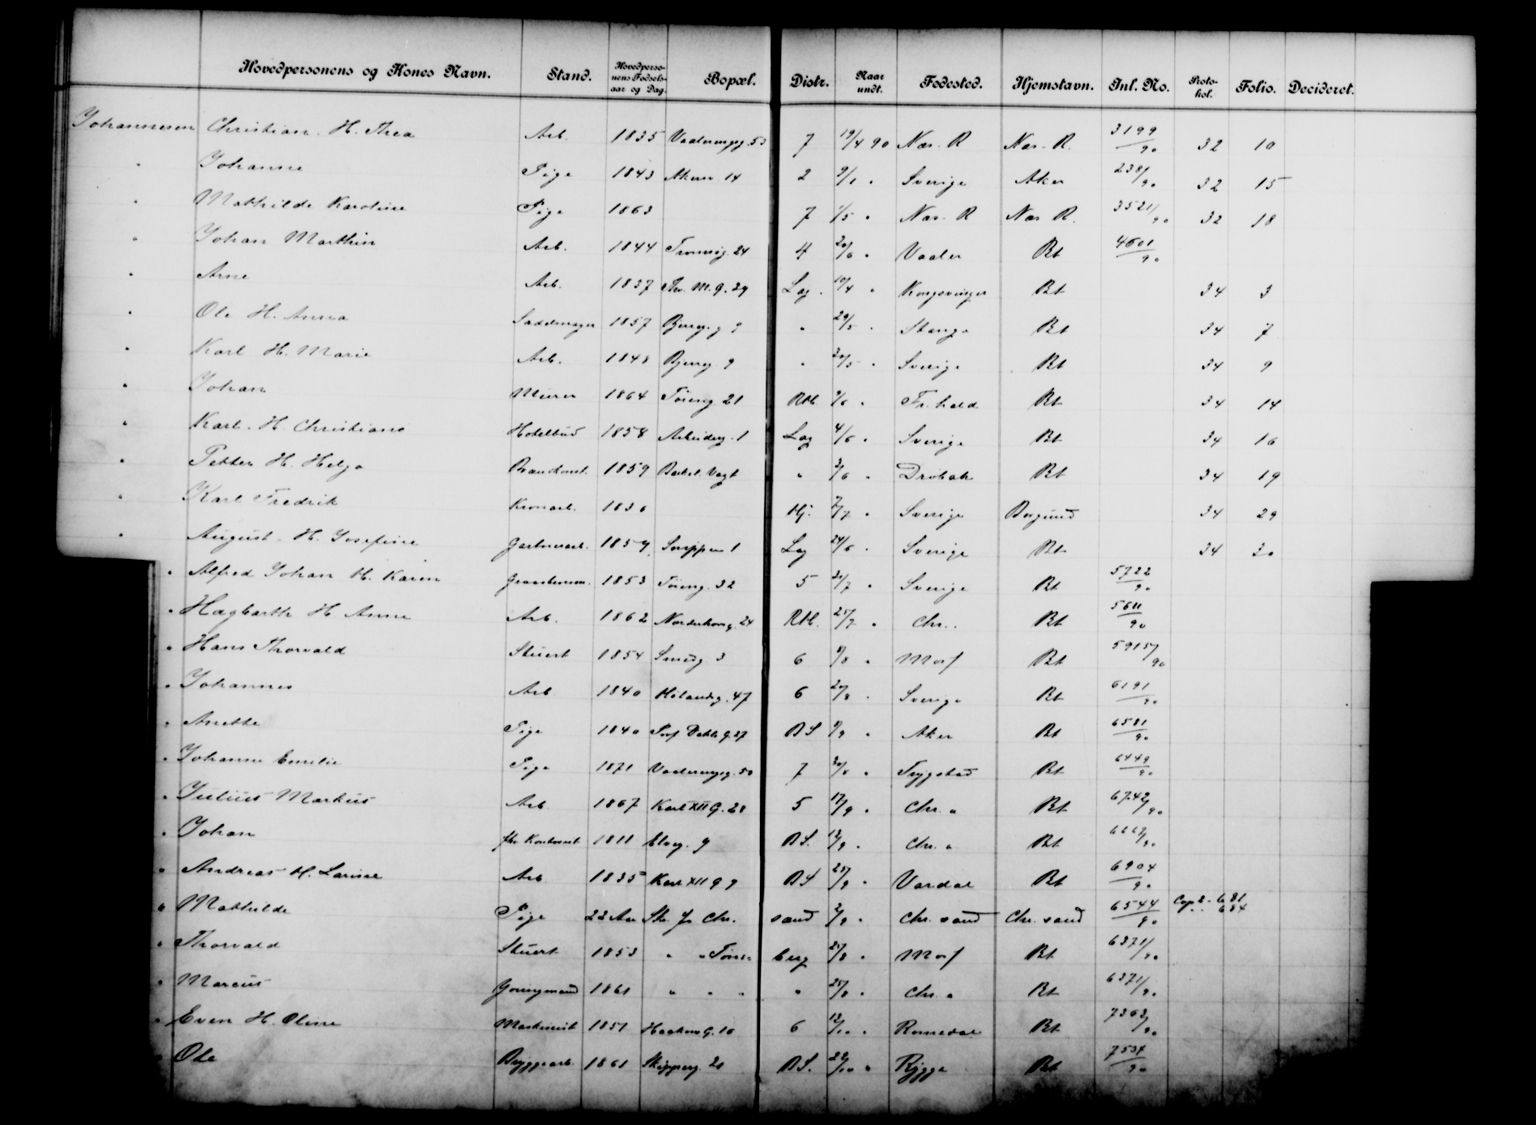 Hovedpersonens og Kones Navn. Stand. Hovedperso-nens Fødsels-aar og Dag. Bopæl. Distr. Naar undt. Fødested. Hjemstavn. Inl. No. Proto-kol. Folio. Decideret.
Johannesen Christian H. Thea Arb. 1835 Vaalerengg. 53 7 19/4 90 Næs. R Næs. R. 3199/90 32 10
" Johanne Pige 1843 Akersv 14 2 9/1 " Sverige Aker 32 15
" Mathilde Karoline Pige 1863 7 1/5 " Næs. R Næs R. 3521/90 32 18
" Johan Marthin Arb. 1844 Tromsøg. 24 4 20/6 " Vaaler Bt 4601/90
" Arne Arb. 1837 Thv. M. G. 29 Log. 19/4 " Kongsvinger Bt 34 3
" Ole H. Anna Sadelmager 1857 Bjergg 9 " 29/5 " Stange Bt 34 7
" Karl H. Marie Arb. 1848 Bjergg. 9 " 30/5 " Sverige Bt 34 9
" Johan Murer 1864 Tøieng 21 Rtb. 2/6 " Fr.hald Bt 34 14
" Karl. H. Christiane Hotelbud 1858 Arbeiderg. 1 Log 4/6 " Sverige Bt 34 16
" Petter H. Helga Brandkonst. 1859 Vagt " 3/6 " Drøbak Bt 34 19
" Karl Fredrik Kronarb. 1836 Hj. 2/7 " Sverige Borgund 34 29
" August H. Josefine Gartnerarb. 1859 1 Log 24/6 " Sverige Bt 34 30
" Alfred Johan H. Karen 1853 Tøieng. 32 5 21/7 " Sverige Bt 5722/90
" Hagbarth H Anne Arb. 1862 Norderhovg. 24 Rtb. 25/7 " Chr. Bt 5611/90
" Hans Thorvald Stuert 1854 Smedg 3 6 9/8 " Moss Bt 5915/90
" Johannes Arb 1840 Hølandsg. 47 6 20/8 " Sverige Bt 6191/90
" Anette Pige 1840 Prof Dahls G. 27 BS 9/9 " Aker Bt 6581/90
" Johanne Emilie Pige 1871 Vaalerengg. 50 7 30/8 " Trygstad Bt 6449/90
" Julius Markus Arb 1867 Karl XII G. 28 5 17/9 " Chr. " Bt 6742/90
" Johan fhv Kontorist 1811 Elveg. 9 BS. 12/9 " Chr. " Bt
" Andreas H. Larine Arb 1835 Karl XII G 9 BS 25/9 " Vardal Bt 6904/90
" Mathilde Pige 22 Aar Skr fr Chr. sand 3/9 " Chr. sand Chr. sand 6544/90 681 684
" Thorvald Stuert 1853 " " Tøns- berg 25/8 " Moss Bt 6371/90
" Marcus Jovngmand 1861 " " " " 25/8 " Chr. " Bt 6371/90
" Even H. Oline Maskinist 1851 Haakons G. 10 6 13/10 " Romedal Bt 7262/90
" Ole Bryggearb 1861 Skipperg 21 BS. 22/10 " Rygge Bt 7534/90